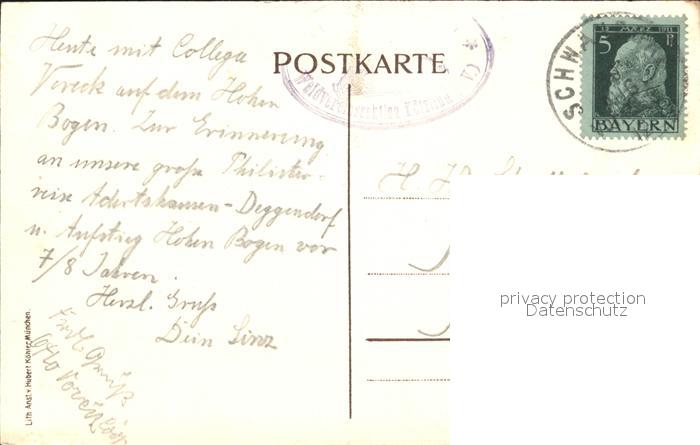 Heute mit Collega
Voreck auf dem Hohen
Bogen. Zur Erinnerung
an unsere große Philister-
reise Adertshausen-Deggendorf
u. Aufstieg Hohen Bogen vor
7/8 Jahren.
Herzl. Gruß
Dein Linz
Gruß
Otto
POSTKARTE
Waldvereinssektion Kötzting
12 MÄRZ 1911
5
BAYERN
SCHW
H.
privacy protection
Datenschutz
Lith. Anst. v. Hubert Köhler, München.